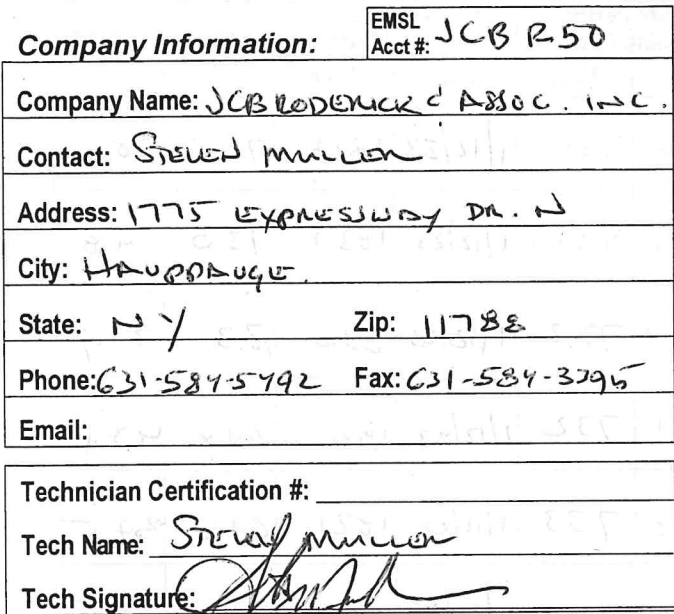 EMSL
Company Information: Acct #: JCB R50
Company Name: JCBRODERICK & ASSOC. INC.
Contact: STEVEN MULLEN
Address: 1775 EXPRESSWAY DR. N
City: HAUPPAUGE.
State: NY Zip: 11788
Phone: 631-584-5492 Fax: 631-584-3395
Email:
Technician Certification #:
Tech Name: STEVEN MULLEN
Tech Signature: